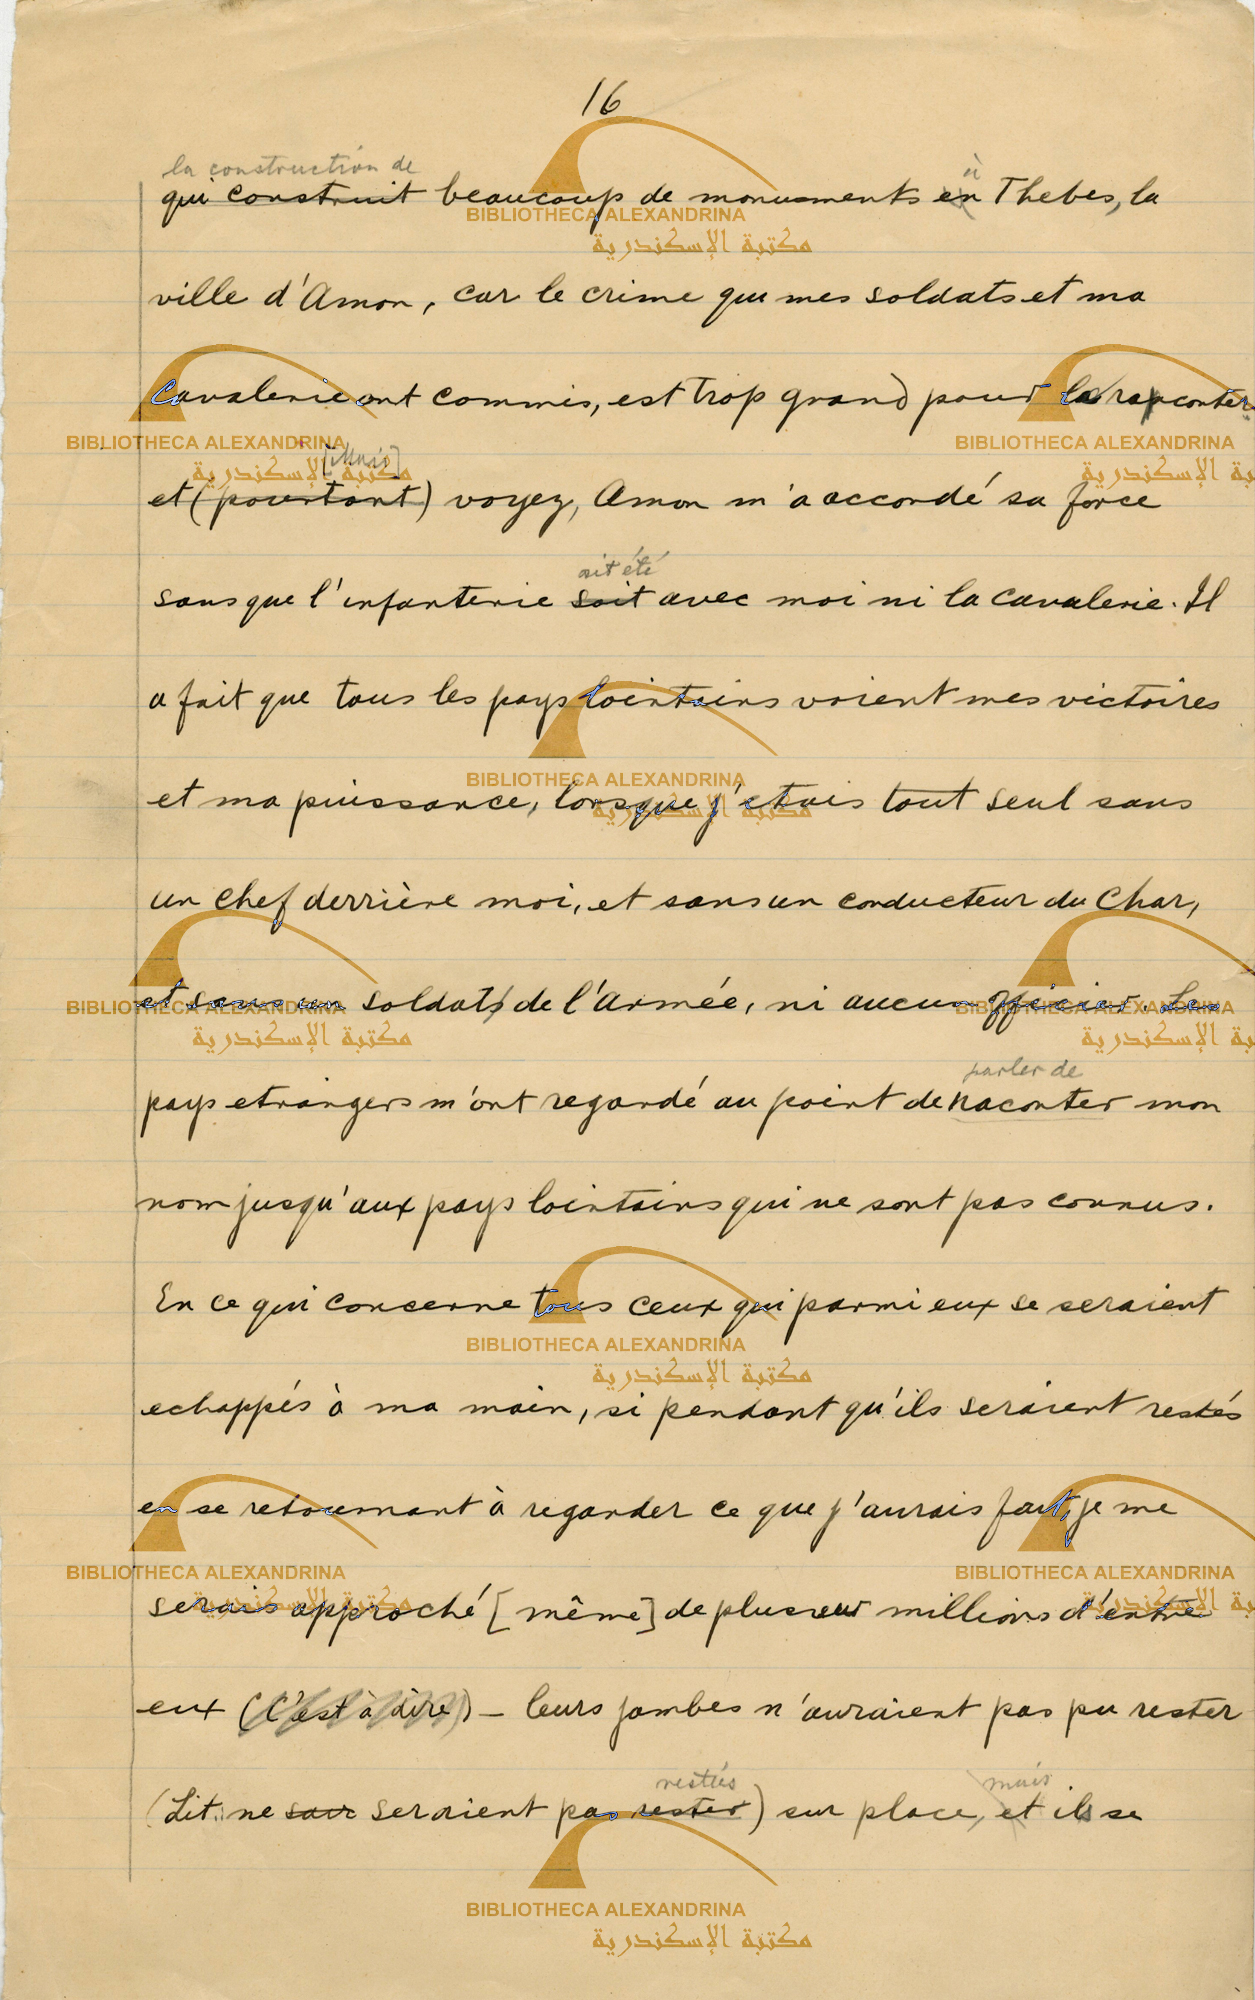 16
la construction de
qui construit beaucoup de monuments en à Thebes, la
ville d'Amon, car le crime que mes soldats et ma
Cavalerie ont commis, est trop grand pour le raconter
[Mais]
et (pourtant) voyez, Amon m'a accordé sa force
ait été
sans que l'infanterie soit avec moi ni la cavalerie. Il
a fait que tous les pays lointains voient mes victoires
et ma puissance, lorsque j'etais tout seul sans
un chef derrière moi, et sans un conducteur du Char,
et sans un soldats de l'Armée, ni aucun officier. Les
parler de
pays etrangers m'ont regardé au point de raconter mon
nom jusqu'aux pays lointains qui ne sont pas connus.
En ce qui concerne tous ceux qui parmi eux se seraient
echappés à ma main, si pendant qu'ils seraient restés
en se retournant à regarder ce que j'aurais fait, je me
serais approché [même] de plusieurs millions d'entre
eux (C'est à dire) – leurs jambes n'auraient pas pu rester
restées mais
(Lit. ne seraient pas rester) sur place, et ils se
BIBLIOTHECA ALEXANDRINA
مكتبة الإسكندرية
BIBLIOTHECA ALEXANDRINA
مكتبة الإسكندرية
BIBLIOTHECA ALEXANDRINA
BIBLIOTHECA ALEXANDRINA
مكتبة الإسكندرية
BIBLIOTHECA ALEXANDRINA
مكتبة الإسكندرية
BIBLIOTHECA ALEXANDRINA
BIBLIOTHECA ALEXANDRINA
مكتبة الإسكندرية
BIBLIOTHECA ALEXANDRINA
مكتبة الإسكندرية
BIBLIOTHECA ALEXANDRINA
BIBLIOTHECA ALEXANDRINA
مكتبة الإسكندرية